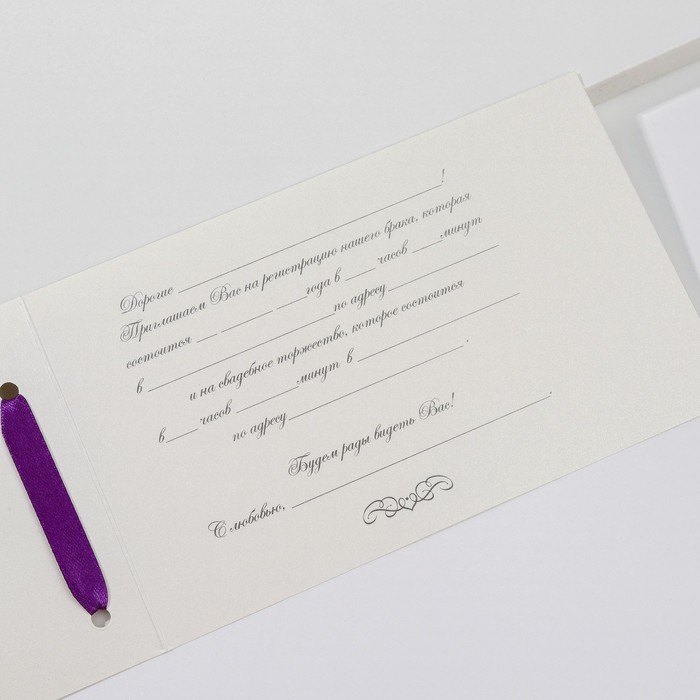 Дорогие ____________________!
Приглашаем Вас на регистрацию нашего брака, которая
состоится ___ _______ ____года в ____ часов ____минут
в ____________________по адресу______________
и на свадебное торжество, которое состоится
в____ часов ________минут в ____________________
по адресу____________________.
Будем рады видеть Вас!
С любовью, ______________________________.